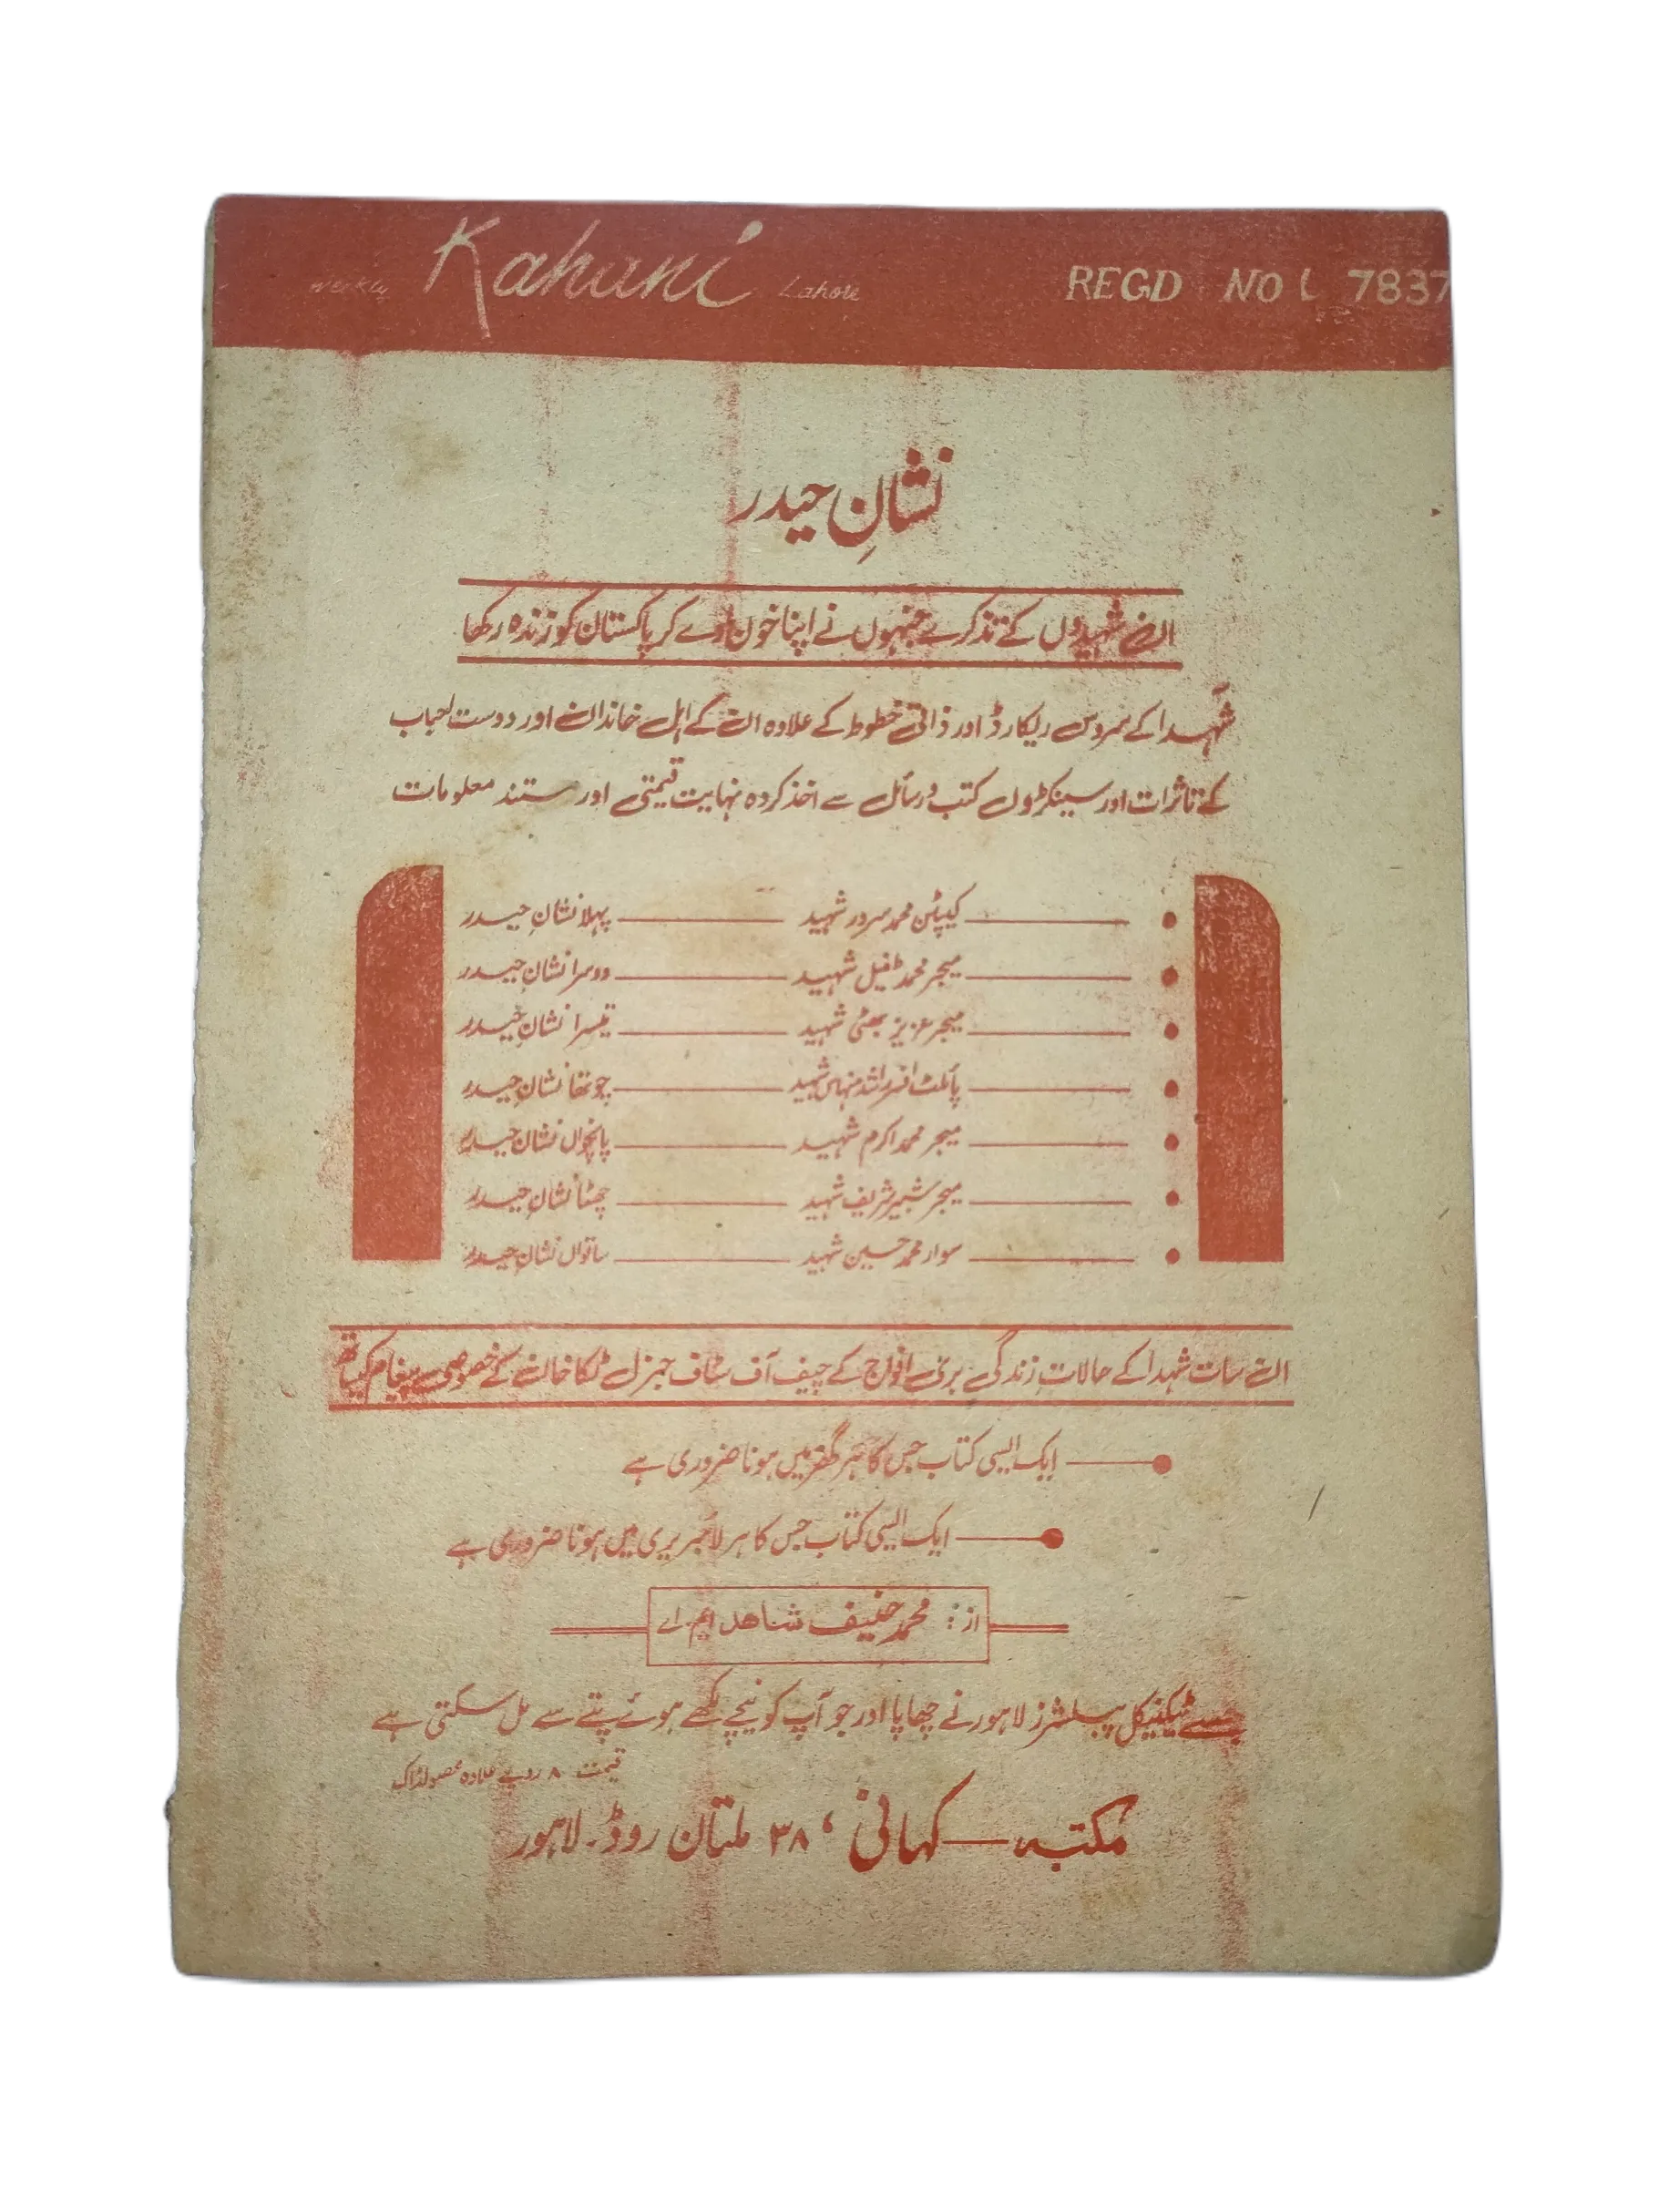 Weekly Kahani Lahore REGD NO L 7837
نشانِ حیدر
ان شہیدوں کے تذکرے جنہوں نے اپنا خون دے کر پاکستان کو زندہ رکھا
شہدا کے سروس ریکارڈ اور ذاتی خطوط کے علاوہ ان کے اہل خاندان اور دوست احباب
کے تاثرات اور سینکڑوں کتب و رسائل سے اخذ کردہ نہایت قیمتی اور مستند معلومات
کیپٹن محمد سرور شہید پہلا نشانِ حیدر
میجر محمد طفیل شہید دوسرا نشانِ حیدر
میجر عزیز بھٹی شہید تیسرا نشانِ حیدر
پائلٹ افسر راشد منہاس شہید چوتھا نشانِ حیدر
میجر محمد اکرم شہید پانچواں نشانِ حیدر
میجر شبیر شریف شہید چھٹا نشانِ حیدر
سوار محمد حسین شہید ساتواں نشانِ حیدر
ان سات شہدا کے حالاتِ زندگی بری افواج کے چیف آف سٹاف جنرل ٹکا خان کے خصوصی پیغام کیساتھ
ایک ایسی کتاب جس کا ہر گھر میں ہونا ضروری ہے
ایک ایسی کتاب جس کا ہر لائبریری میں ہونا ضروری ہے
از: محمد حنیف شاھد ایم۔اے
جسے ٹیکنیکل پبلشرز لاہور نے چھاپا اور جو آپ کو نیچے لکھے ہوئے پتے سے مل سکتی ہے
قیمت ۸ روپے علاوہ محصولڈاک
مکتبہ — کہانی ، ۳۸ ملتان روڈ۔ لاہور